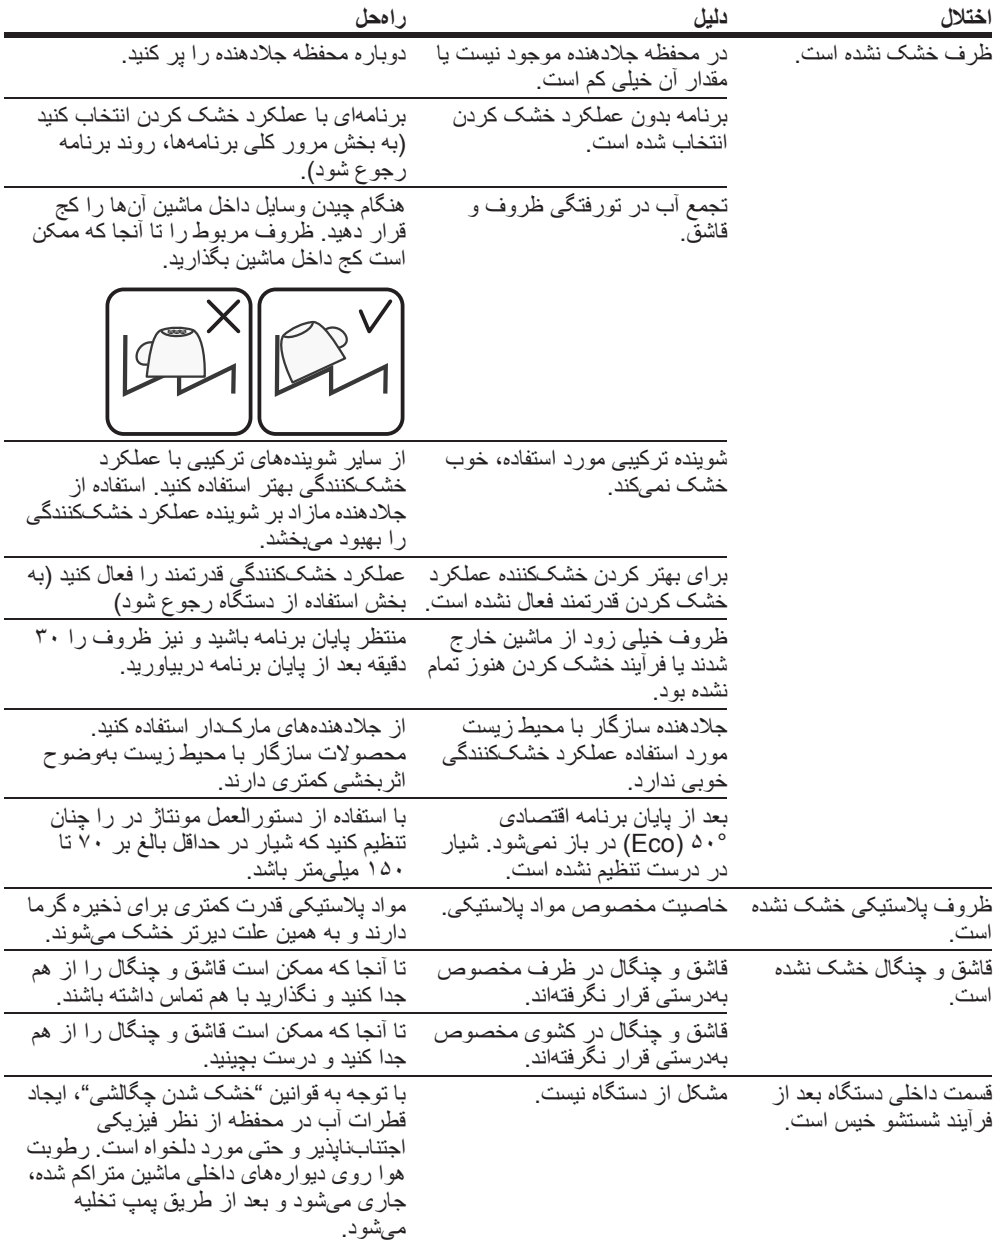 اختلال
دلیل
راه‌حل
ظرف خشک نشده است.
در محفظه جلادهنده موجود نیست یا
مقدار آن خیلی کم است.
دوباره محفظه جلادهنده را پر کنید.
برنامه بدون عملکرد خشک کردن
انتخاب شده است.
برنامه‌ای با عملکرد خشک کردن انتخاب کنید
(به بخش مرور کلی برنامه‌ها، روند برنامه
رجوع شود).
تجمع آب در تورفتگی ظروف و
قاشق.
هنگام چیدن وسایل داخل ماشین آن‌ها را کج
قرار دهید. ظروف مربوط را تا آنجا که ممکن
است کج داخل ماشین بگذارید.
شوینده ترکیبی مورد استفاده، خوب
خشک نمی‌کند.
از سایر شوینده‌های ترکیبی با عملکرد
خشک‌کنندگی بهتر استفاده کنید. استفاده از
جلادهنده مازاد بر شوینده عملکرد خشک‌کنندگی
را بهبود می‌بخشد.
برای بهتر کردن خشک‌کننده عملکرد
خشک کردن قدرتمند فعال نشده است.
عملکرد خشک‌کنندگی قدرتمند را فعال کنید (به
بخش استفاده از دستگاه رجوع شود)
ظروف خیلی زود از ماشین خارج
شدند یا فرآیند خشک کردن هنوز تمام
نشده بود.
منتظر پایان برنامه باشید و نیز ظروف را ۳۰
دقیقه بعد از پایان برنامه دربیاورید.
جلادهنده سازگار با محیط زیست
مورد استفاده عملکرد خشک‌کنندگی
خوبی ندارد.
از جلادهنده‌های مارک‌دار استفاده کنید.
محصولات سازگار با محیط زیست به‌وضوح
اثربخشی کمتری دارند.
بعد از پایان برنامه اقتصادی
(Eco) ۵۰° در باز نمی‌شود. شیار
در درست تنظیم نشده است.
با استفاده از دستورالعمل مونتاژ در را چنان
تنظیم کنید که شیار در حداقل بالغ بر ۷۰ تا
۱۵۰ میلی‌متر باشد.
ظروف پلاستیکی خشک نشده
است.
خاصیت مخصوص مواد پلاستیکی.
مواد پلاستیکی قدرت کمتری برای ذخیره گرما
دارند و به همین علت دیرتر خشک می‌شوند.
قاشق و چنگال خشک نشده
است.
قاشق و چنگال در ظرف مخصوص
به‌درستی قرار نگرفته‌اند.
تا آنجا که ممکن است قاشق و چنگال را از هم
جدا کنید و نگذارید با هم تماس داشته باشند.
قاشق و چنگال در کشوی مخصوص
به‌درستی قرار نگرفته‌اند.
تا آنجا که ممکن است قاشق و چنگال را از هم
جدا کنید و درست بچینید.
قسمت داخلی دستگاه بعد از
فرآیند شستشو خیس است.
مشکل از دستگاه نیست.
با توجه به قوانین “خشک شدن چگالشی“، ایجاد
قطرات آب در محفظه از نظر فیزیکی
اجتناب‌ناپذیر و حتی مورد دلخواه است. رطوبت
هوا روی دیواره‌های داخلی ماشین متراکم شده،
جاری می‌شود و بعد از طریق پمپ تخلیه
می‌شود.